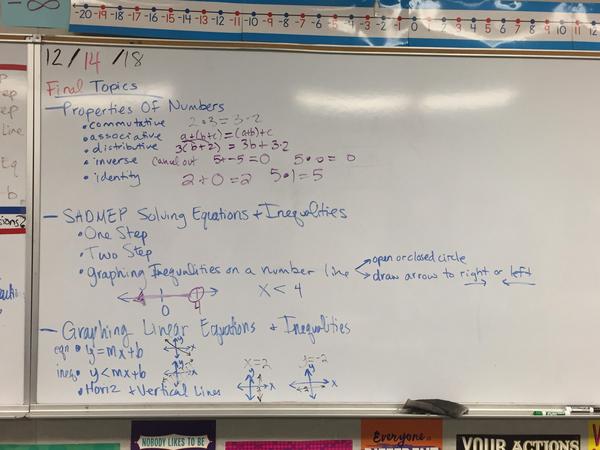 -20 -19 -18 -17 -16 -15 -14 -13 -12 -11 -10 -9 -8 -7 -6 -5 -4 -3 -2 -1 0 1 2 3 4 5 6 7 8 9 10 11 12
-∞
12/14/18
Final Topics
– Properties Of Numbers
• commutative 2·3=3·2
• associative a+(b+c)=(a+b)+c
• distributive 3(b+2) = 3b+3·2
• inverse cancel out 5+-5=0 5·0=0
• identity 2+0=2 5·1=5
– SADMEP Solving Equations + Inequalities
• One Step
• Two Step
• Graphing Inequalities on a number line
open or closed circle
draw arrow to right or left
0 4 x < 4
– Graphing Linear Equations + Inequalities
eqn • y=mx+b
ineq • y<mx+b
• Horiz + Vertical Lines
x=2
y=-2
NOBODY LIKES TO BE
Everyone is
DIFFERENT
YOUR ACTIONS